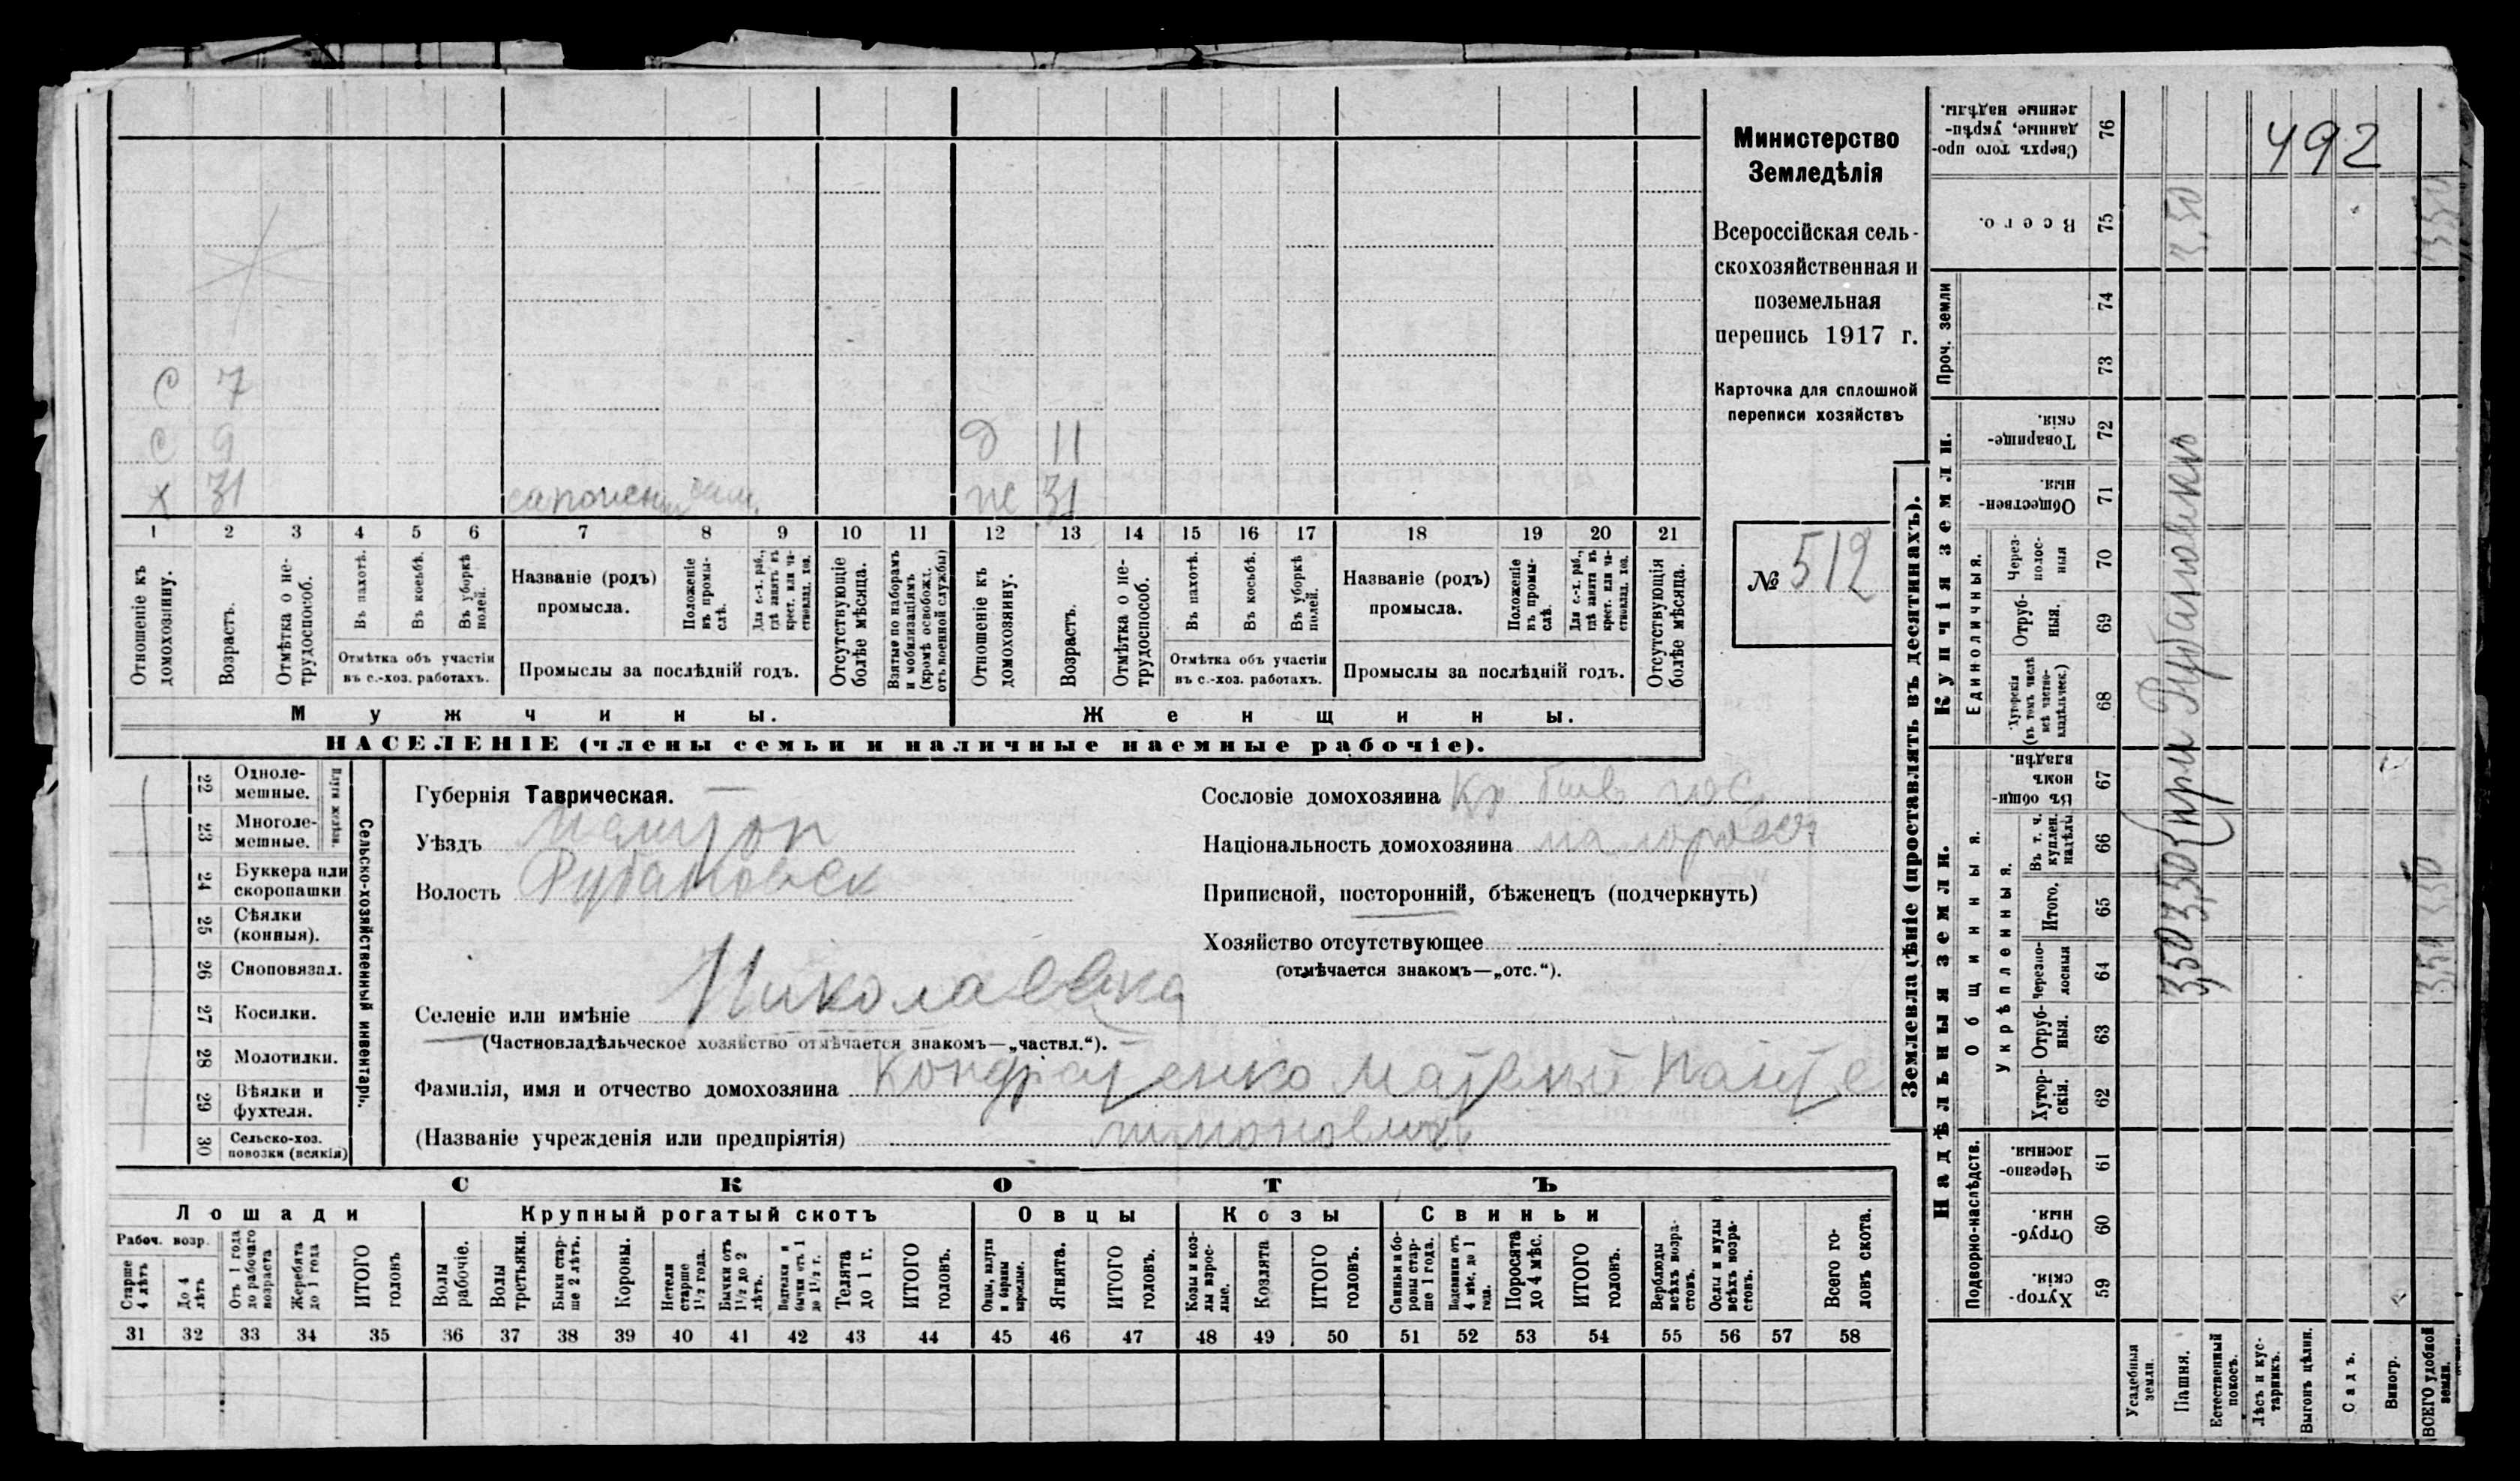 492
Министерство
Земледѣлія
Всероссійская сель-
скохозяйственная и
поземельная
перепись 1917 г.
Карточка для сплошной
переписи хозяйствъ
№ 512
С 7
С 9 Д 11
х 31 ж 31
1 2 3 4 5 6 7 8 9 10 11 12 13 14 15 16 17 18 19 20 21
Отношеніе къ домохозяину.
Возрастъ.
Отмѣтка о не-трудоспособ.
Въ пахотѣ.
Въ косьбѣ.
Въ уборкѣ полей.
Отмѣтка объ участіи
въ с.-хоз. работахъ.
Названіе (родъ)
промысла.
Положеніе въ промы-слѣ.
Для с.-х. раб., гдѣ занятъ въ крест. или ча-стновлад. хоз.
Промыслы за послѣдній годъ.
Отсутствующіе болѣе мѣсяца.
Взятые по наборамъ и мобилизаціямъ (кромѣ освобожд. отъ военной службы)
Отношеніе къ домохозяину.
Возрастъ.
Отмѣтка о не-трудоспособ.
Въ пахотѣ.
Въ косьбѣ.
Въ уборкѣ полей.
Отмѣтка объ участіи
въ с.-хоз. работахъ.
Названіе (родъ)
промысла.
Положеніе въ промы-слѣ.
Для с.-х. раб., гдѣ занята въ крест. или ча-стновлад. хоз.
Промыслы за послѣдній годъ.
Отсутствующія болѣе мѣсяца.
Мужчины. Женщины.
НАСЕЛЕНІЕ (члены семьи и наличные наемные рабочіе).
Сельско-хозяйственный инвентарь.
Плуги желѣзн.
22 Одноле-мешные.
23 Многоле-мешные.
24 Буккера или скоропашки
25 Сѣялки (конныя).
26 Сноповязал.
27 Косилки.
28 Молотилки.
29 Вѣялки и фухтеля.
30 Сельско-хоз. повозки (всякія)
Губернія Таврическая.
Уѣздъ Мелитоп
Волость Рубановск
Сословіе домохозяина Кр. бывъ гос.
Національность домохозяина малоросс
Приписной, посторонній, бѣженецъ (подчеркнуть)
Хозяйство отсутствующее
(отмѣчается знакомъ—„отс.“).
Селеніе или имѣніе Николаевка
(Частновладѣльческое хозяйство отмѣчается знакомъ—„частвл.“).
Фамилія, имя и отчество домохозяина Кондратенко Матвѣй Панте
лимоновичъ
(Названіе учрежденія или предпріятія)
СКОТЪ
Лошади Крупный рогатый скотъ Овцы Козы Свиньи
Рабоч. возр.
Старше 4 лѣтъ
До 4 лѣтъ
Отъ 1 года до рабочаго возраста
Жеребята до 1 года
ИТОГО головъ
Волы рабочіе.
Волы третьяки.
Быки стар-ше 2 лѣтъ.
Коровы.
Нетели старше 1½ года.
Бычки отъ 1½ до 2 лѣтъ.
Подтелки и бычки отъ 1 до 1½ г.
Телята до 1 г.
ИТОГО головъ.
Овцы, валухи и бараны взрослые.
Ягнята.
ИТОГО головъ.
Козы и коз-лы взрос-лые.
Козлята
ИТОГО головъ.
Свиньи и бо-ровы стар-ше 1 года.
Подсвинки отъ 4 мѣс. до 1 года.
Поросята до 4 мѣс.
ИТОГО головъ.
Верблюды всѣхъ возра-стовъ.
Ослы и мулы всѣхъ возра-стовъ.
Всего го-ловъ скота.
31 32 33 34 35 36 37 38 39 40 41 42 43 44 45 46 47 48 49 50 51 52 53 54 55 56 57 58
Землевладѣніе (проставлять въ десятинахъ).
Надѣльныя земли.
Купчія земли.
Проч. земли
Подворно-наслѣдств.
Общинныя.
Укрѣпленныя.
Единоличныя.
59 Хутор-скія.
60 Отруб-ныя.
61 Черезпо-лосныя.
62 Хутор-скія.
63 Отруб-ныя.
64 Черезпо-лосныя
65 Итого.
66 Въ т. ч. куплен. надѣлы.
67 Въ общи-номъ владѣн.
68 Хуторскія (въ томъ числѣ всѣ частно-владѣльческ.)
69 Отруб-ныя.
70 Через-полос-ныя
71 Обществен-ныя.
72 Товарище-скія.
73
74
75 Всего.
76 Сверхъ того про-данные, укрѣп-ленные надѣлы.
Усадебныя земли.
Пашня. 3,50 3,50 (при Рубановкѣ 3,50
Естественный покосъ.
Лѣсъ и кус-тарникъ.
Выгонъ цѣлин.
Садъ.
Виногр.
ВСЕГО удобной земли. 350 350 350